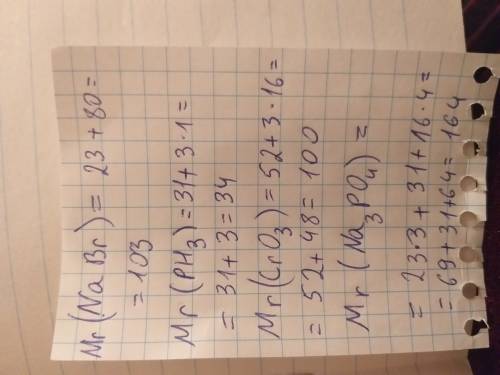 Mr(NaBr) = 23 + 80 =
= 103
Mr(PH₃) = 31 + 3 · 1 =
= 31 + 3 = 34
Mr(CrO₃) = 52 + 3 · 16 =
= 52 + 48 = 100
Mr(Na₃PO₄) =
= 23 · 3 + 31 + 16 · 4 =
= 69 + 31 + 64 = 164